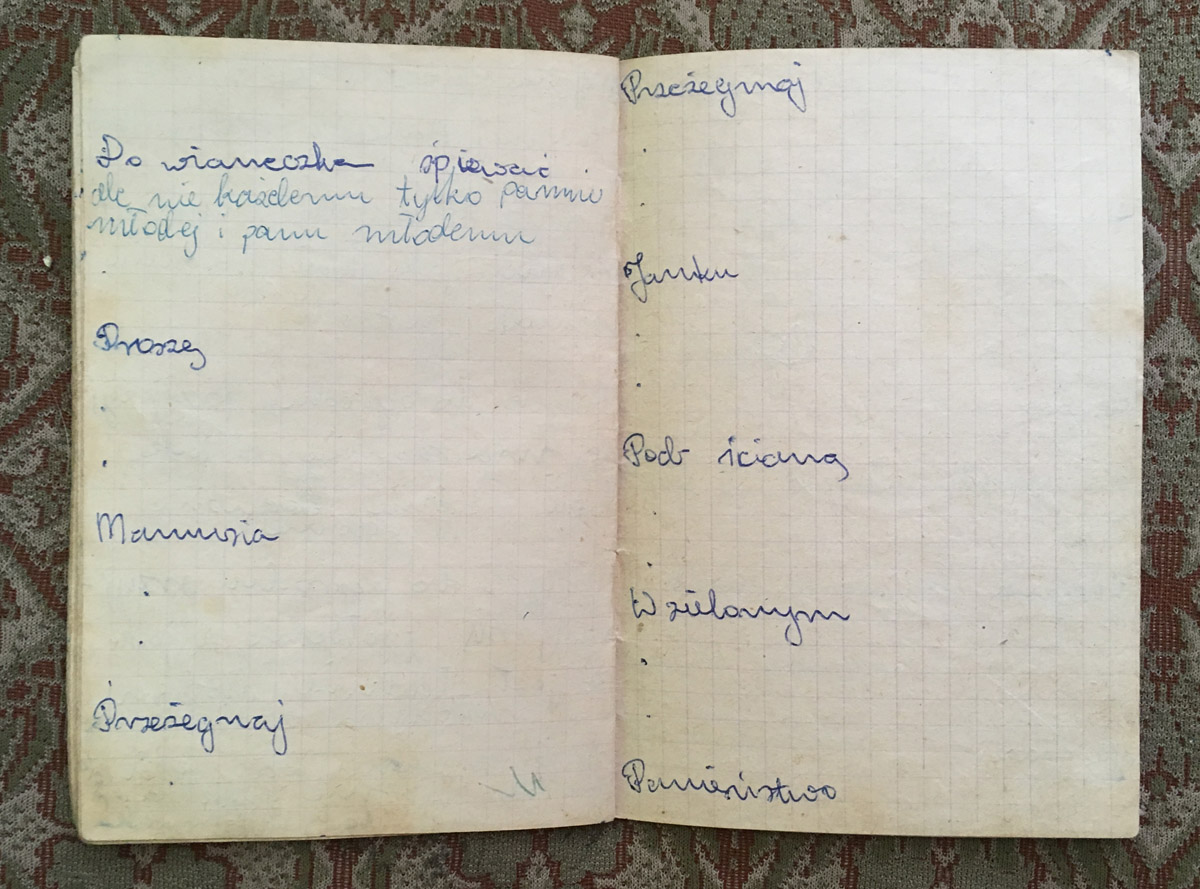 Do wianeczka śpiewać
ale nie każdemu tylko pannie
młodej i panu młodemu
Proszę
Mamusia
Przeżegnaj
Przeżegnaj
Janku
Pod ścianą
W zielonym
Panieństwo